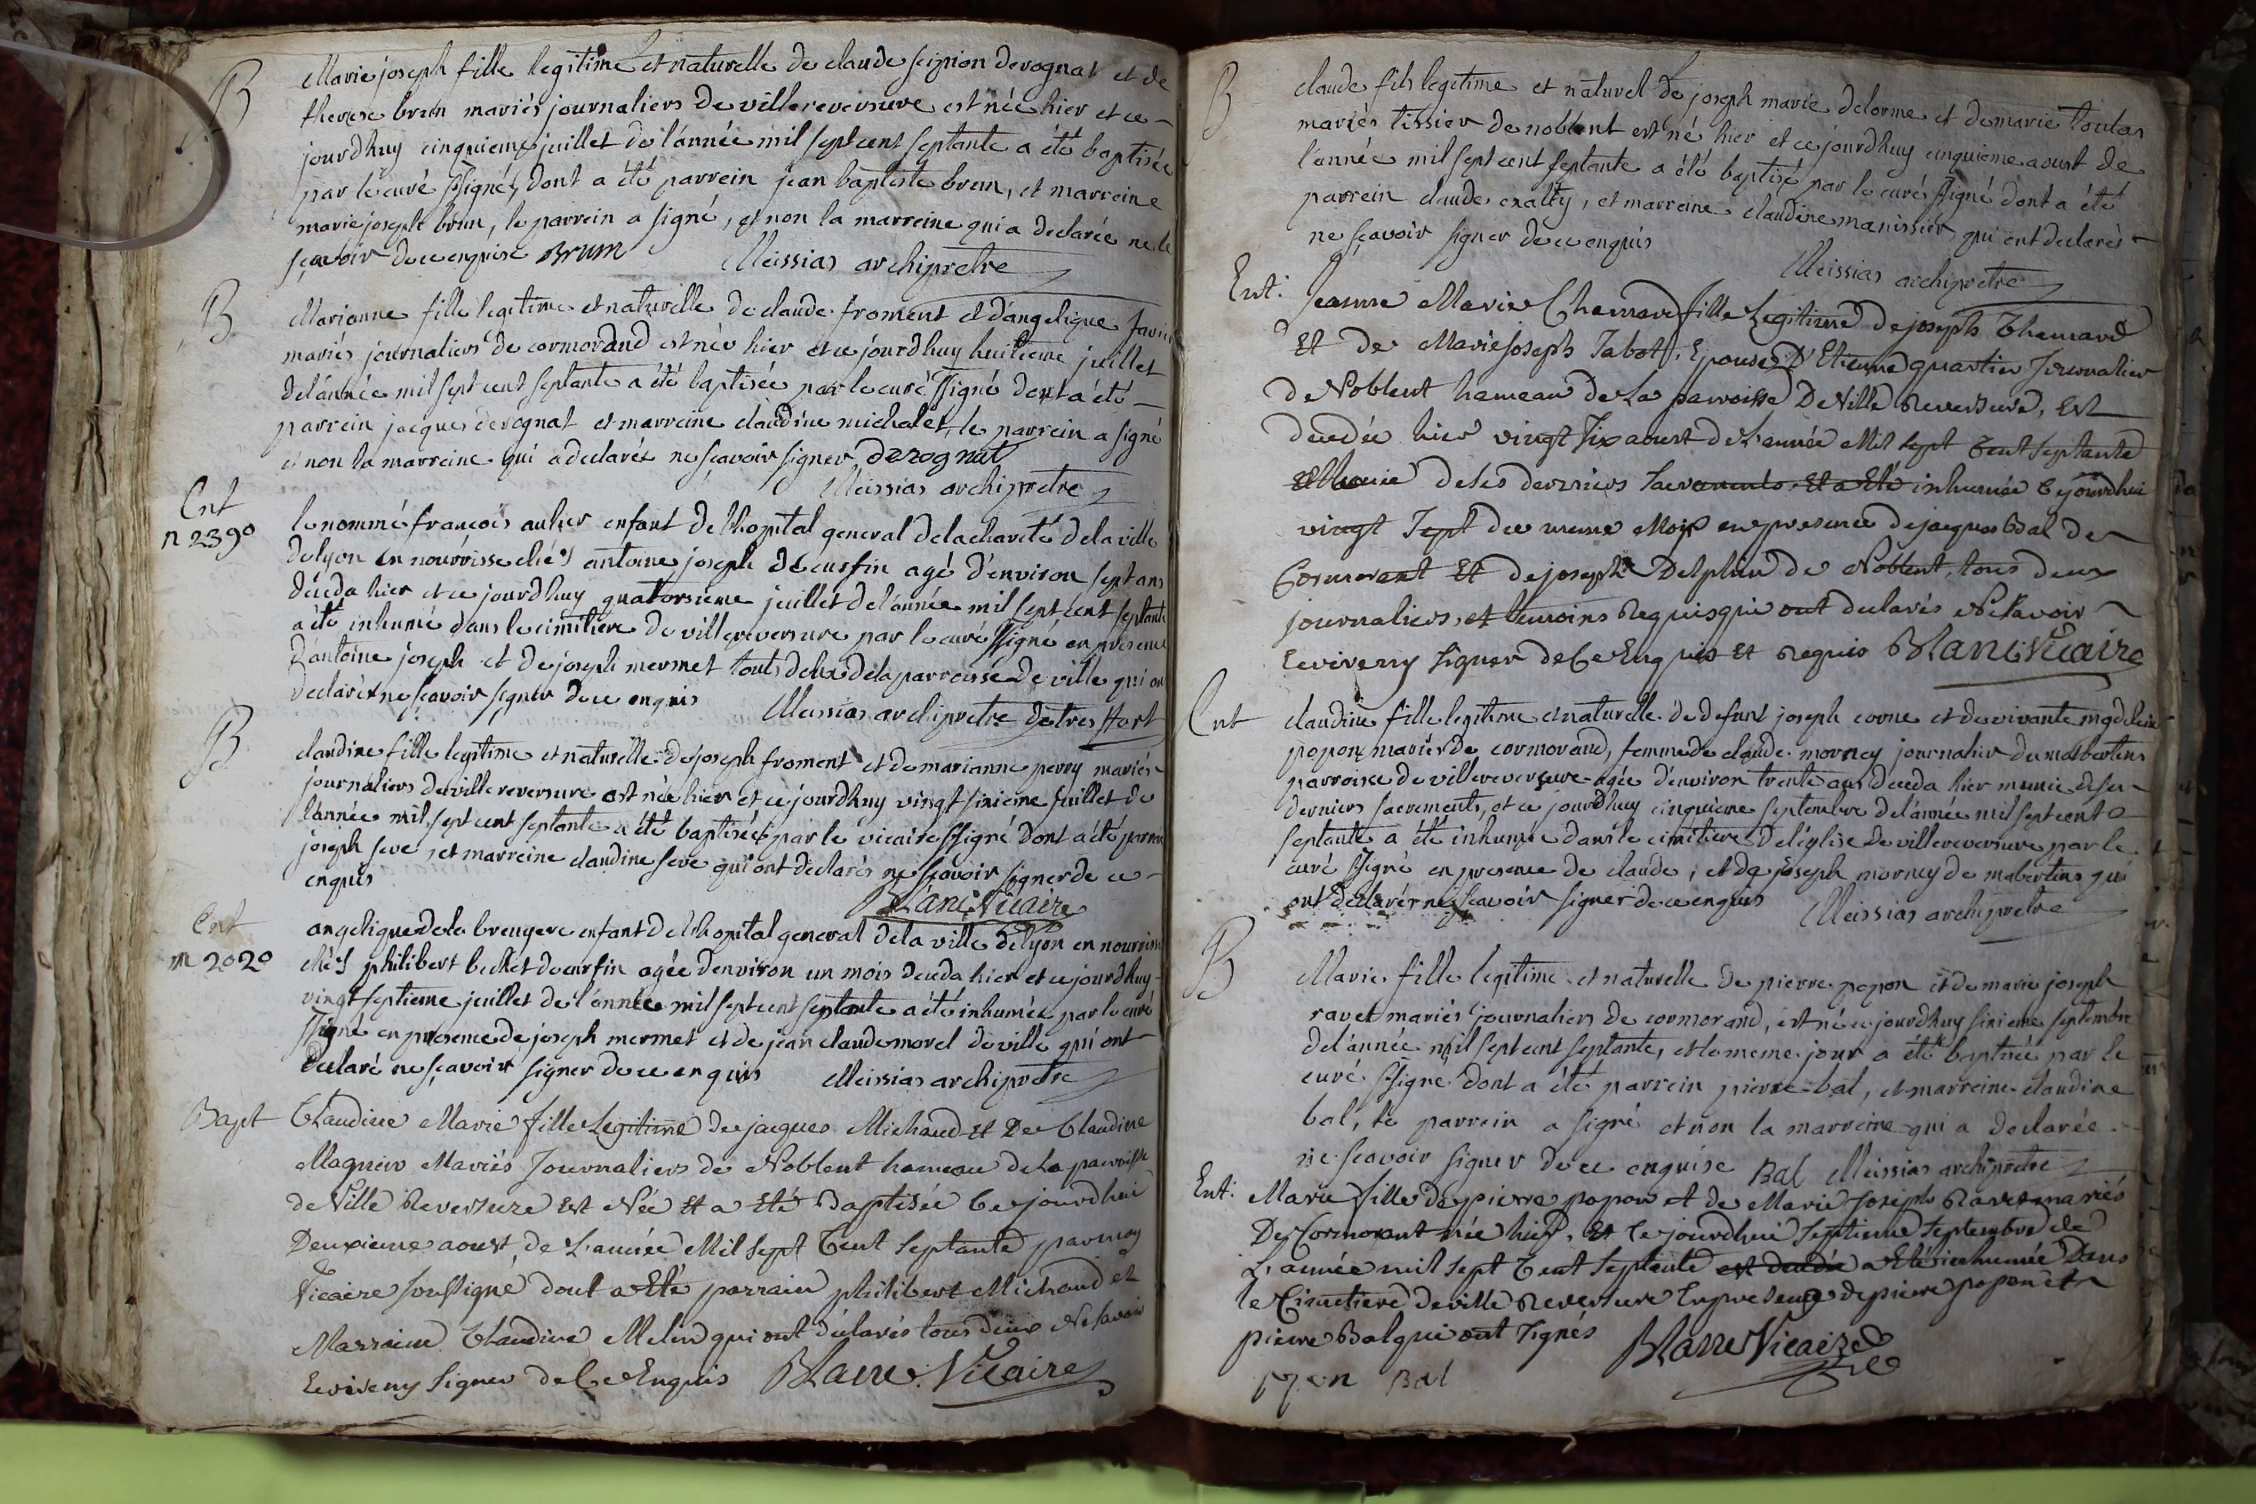 B
Marie joseph fille legitime et naturelle de claude scipion derognat et de
therese brun mariés journaliers de villereversure est née hier et ce
jourdhuy cinquieme juillet de l'année mil sept cent septante a été baptisée
par le curé ssigné, dont a été parrein jean baptiste brun, et marreine
marie joseph brun, le parrein a signé, et non la marreine qui a declarée ne le
sçavoir de ce enquise Brun Meissias archipretre
B
Marianne fille legitime et naturelle de claude froment et d'angelique
mariés journaliers de cormorand est née hier et ce jourdhuy huitieme juillet
de l'année mil sept cent septante a été baptisée par le curé ssigné dont a été
parrein jacques derognat et marreine claudine michalet, le parrein a signé
et non la marreine qui a declarée ne sçavoir signer derognat
Meissias archipretre
Ent
n 2390
le nommé françois aulier enfant de l'hopital general de la charité de la ville
de lyon en nourrisse chés antoine joseph de cursin agé d'environ sept ans
deceda hier et ce jourdhuy quatorsieme juillet de l'année mil sept cent septante
a été inhumé dans le cimitiere de villereversure par le curé ssigné en presence
d'antoine joseph et de joseph mermet touts deux de la parroisse de ville qui on
declaré ne sçavoir signer de ce enquis Meissias archipretre
B
claudine fille legitime et naturelle de joseph froment et de marianne perry mariés
journaliers de villereversure est née hier et ce jourdhuy vingt sixieme juillet de
l'année mil sept cent septante a été baptisée par le vicaire ssigné dont a été parrein
joseph seve, et marreine claudine seve qui ont declarés ne sçavoir signer de ce
enquis
Blanc Vicaire
Ent
n 2020
angelique de la bruyere enfant de l'hopital general de la ville de lyon en nourrisse
chés philibert bechet de cursin agée d'environ un mois deceda hier et ce jourdhuy
vingt septieme juillet de l'année mil sept cent septante a été inhumée par le curé
ssigné en presence de joseph mermet et de jean claude morel de ville qui ont
declaré ne sçavoir signer de ce enquis Meissias archipretre
Bapt
Claudine Marie fille Legitime de jacques Michaud Et De Claudine
Magnin Mariés Journaliers de Noblent hameau de La parroisse
de Ville Reversure Est Née Et a Eté Baptisée Cejourdhui
Deuxieme aoust de L'année Mil Sept Cent Septante par moy
Vicaire soussigné dont a Eté parrain philibert Michaud et
Marraine Claudine Melin qui ont déclarés tous deux Ne Savoir
Ecrire ny Signer de Ce Enquis Blanc Vicaire
B
claude fils legitime et naturel de joseph marie delorme et de marie toutan
mariés tissier de noblent est né hier et ce jourdhuy cinquieme aoust de
l'année mil sept cent septante a été baptisé par le curé ssigné dont a été
parrein claude exalty, et marreine claudine manissier, qui ont declarés
ne sçavoir signer de ce enquis
Meissias archipretre
Ent:
Jeanne Marie Chanard fille Legitime de joseph Chanard
Et de Marie Joseph Tabot, Epouse D'Etienne quartier Journalier
de Noblent hameau de La parroisse De Ville Reversure, Est
decedée hier vingt Six aoust de L'année Mil Sept Cent Septante
Et Munie de ses derniers Sacrements, Et a Eté inhumée Cejourdhui
vingt Sept du meme Mois en presence de jacques Bal de
Cormorant Et de joseph Delplan de Noblent, tous deux
journaliers, et temoins Requis qui ont declarés Ne Savoir
Ecrire ny Signer de Ce Enquis Et Requis Blanc Vicaire
Ent
claudine fille legitime et naturelle de defunt joseph corne et de vivante magdeleine
popon mariés de cormorand, femme de claude morney journalier de mabertins
parroisse de villereversure agée d'environ trente ans deceda hier munie de ses
derniers sacrements, et ce jourdhuy cinquieme septembre de l'année mil sept cent
septante a été inhumée dans le cimitiere de l'église de villereversure par le
curé ssigné en presence de claude, et de joseph morney de mabertins qui
ont declaré ne sçavoir signer de ce enquis Meissias archipretre
B
Marie fille legitime et naturelle de pierre popon et de marie joseph
ravet mariés journaliers de cormorand, est née ce jourdhuy sixieme septembre
de l'année mil sept cent septante, et le meme jour a été baptisée par le
curé ssigné dont a été parrein pierre bal, et marreine claudine
bal, le parrein a signé et non la marreine qui a declarée
ne sçavoir signer de ce enquise Bal Meissias archipretre
Ent:
Marie fille de pierre popon et de Marie Joseph Ravet mariés
De Cormorant née hier, Et Cejourdhui Septieme Septembre de
L'année mil Sept Cent Septante est decedée a Eté inhumée Dans
le Cimetiere de ville Reversure En presence de pierre popon et
pierre Bal qui ont Signés Blanc Vicaire
Bal